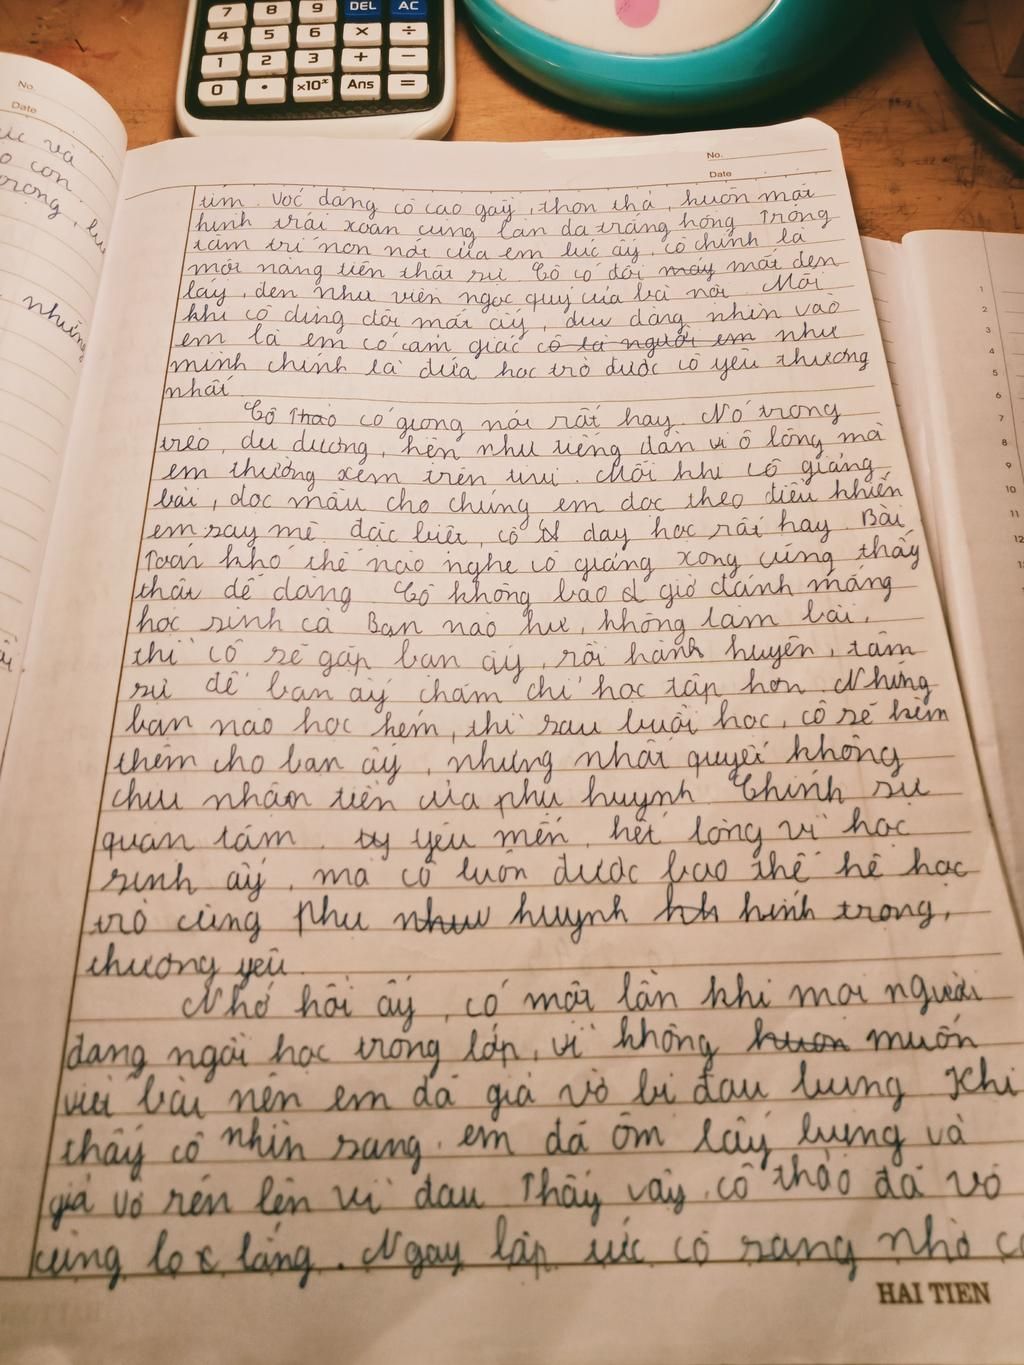 7 8 9 DEL AC
4 5 6 × ÷
1 2 3 + −
0 • ×10ˣ Ans =
No.
Date
No.
Date
và
con
trọng,
những
tim. Vóc dáng cô cao gầy, thon thả, khuôn mặt
hình trái xoan cùng làn da trắng hồng. Trong
tâm trí non nớt của em lúc ấy, cô chính là
một nàng tiên thật sự. Cô có đôi mắt đen
láy, đen như viên ngọc quý của bà nội. Mỗi
khi cô dùng đôi mắt ấy, dịu dàng nhìn vào
em là em có cảm giác cô là người em như
mình chính là đứa học trò được cô yêu thương
nhất
Cô Thảo có giọng nói rất hay. Nó trong
trẻo, du dương, hện như tiếng đàn vi ô lông mà
em thường xem trên tivi. Mỗi khi cô giảng
bài, đọc mẫu cho chúng em đọc theo điều khiến
em say mê. đặc biệt, cô dạy học rất hay. Bài
Toán khó thế nào nghe cô giảng xong cũng thấy
thật dễ dàng. Cô không bao giờ đánh mắng
học sinh cả. Bạn nào hư, không làm bài,
thì cô sẽ gặp bạn ấy, rồi hành huyên, tâm
sự để bạn ấy chăm chỉ học tập hơn. Những
bạn nào học kém, thì sau buổi học, cô sẽ kèm
thêm cho bạn ấy, nhưng nhất quyết không
chịu nhận tiền của phụ huynh. Chính sự
quan tâm, yêu mến, hết lòng vì học
sinh ấy, mà cô luôn được bao thế hệ học
trò cùng phụ huynh kính trọng,
thương yêu.
Nhớ hồi ấy, có một lần khi mọi người
đang ngồi học trong lớp, vì không muốn
viết bài nên em đã giả vờ bị đau lưng. Khi
thấy cô nhìn sang, em đã ôm lấy lưng và
giả vờ rên lên vì đau. Thấy vậy, cô thảo đã vô
cùng lo lắng. Ngay lập tức cô sang nhờ
HAI TIEN
1
2
3
4
5
6
7
8
9
10
11
12